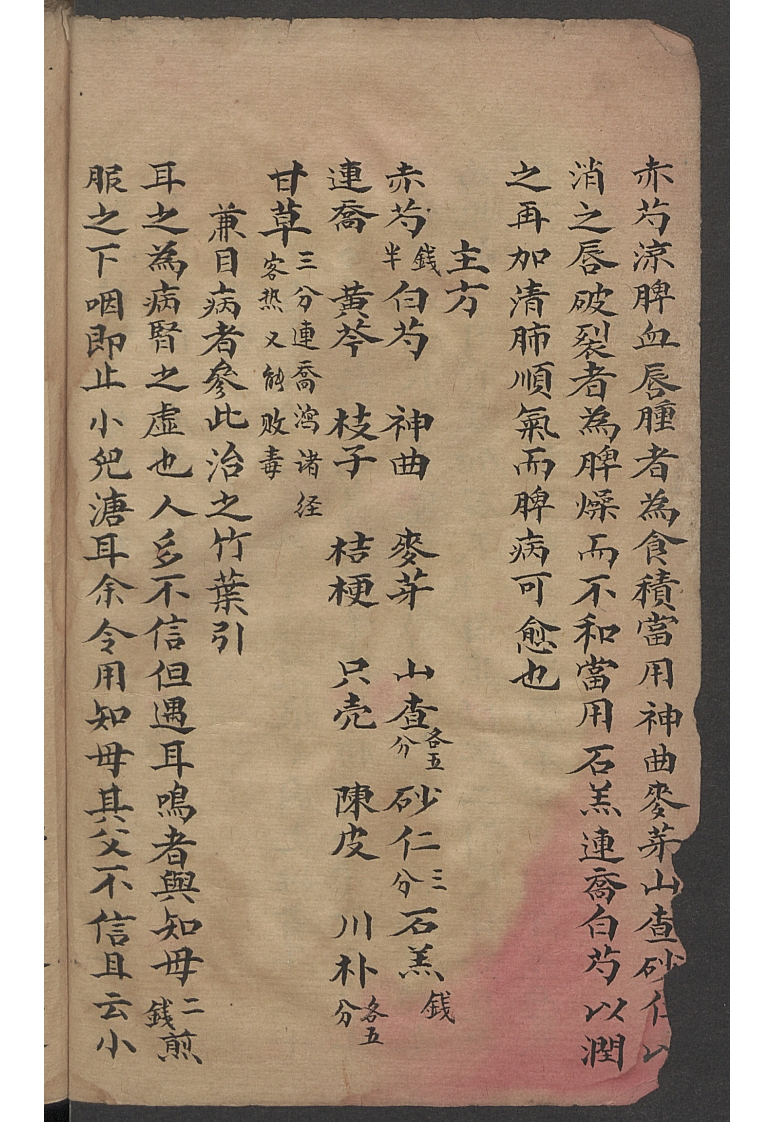 赤芍涼脾血唇腫者為食積當用神曲麥芽山查砂仁以
消之唇破裂者為脾燥而不和當用石羔連喬白芍以潤
之再加清肺順氣而脾病可愈也
主方
赤芍錢半白芍 神曲 麥芽 山查各五分砂仁三分石羔錢
連喬 黃芩 枝子 桔梗 只壳 陳皮 川朴各五分
甘草三分連喬瀉诸径客热又能败毒
兼目病者參此治之竹葉引
耳之為病腎之虛也人多不信但遇耳鳴者與知母二錢煎
服之下咽即止小兒溏耳余令用知母其父不信且云小